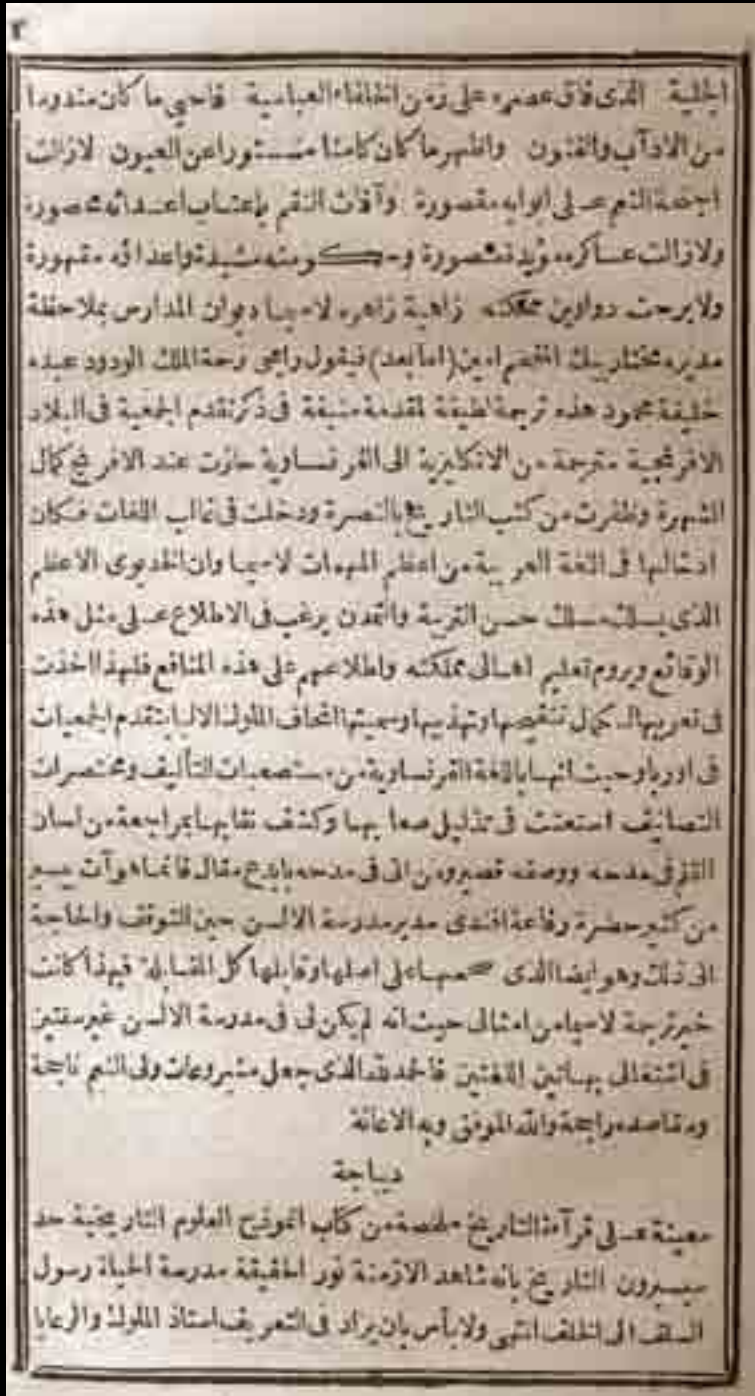 ٢
الجلية الذى فاق عصره على زمن الخلفاء العباسية فاحيى ما كان مندورا
من الاداب والفنون واظهر ما كان كامنا مستورا عن العيون لازالت
اجنحة النعم على ابوابه مقصورة وآفات النقم باعتاب اعدائه محصورة
ولازالت عساكره مؤيدة منصورة وحكومته مشيدة واعداؤه مقهورة
ولا برحت دواوين مملكته زاهية زاهره لاسيما ديوان المدارس بملاحظة
مديره مختار بيك الخضم امين (اما بعد) فيقول راجى رحمة الملك الودود عبده
خليفة محمود هذه ترجمة لطيفة لمقدمة منيفة فى ذكر تقدم الجمعية فى البلاد
الافرنجية مترجمة من الانكليزية الى الفرنساوية حازت عند الافرنج كمال
الشهرة وظفرت من كتب التاريخ بالنصرة ودخلت فى غالب اللغات فكان
ادخالها فى اللغة العربية من اعظم المهمات لاسيما وان الخديوى الاعظم
الذى يسلك مسلك حسن التربية والتمدن يرغب فى الاطلاع على مثل هذه
الوقائع ويروم تعليم اهالى مملكته واطلاعهم على هذه المنافع فلهذا اخذت
فى تعريبها لكمال تنقيصها وتهذيبها وسميتها اتحاف الملوك الالبا بتقدم الجمعيات
فى اوربا وحيث انها باللغة الفرنساوية من مستصعبات التأليف ومختصرات
التصانيف استعنت فى تذليل صعابها وكشف نقابها بمراجعة من لسان
القلم فى مدحه ووصفه قصير ومن اتى فى مدحه بابدع مقال فانما هو آت بيسير
من كثير حضرة رفاعة افندى مدير مدرسة الالسن حين التوقف والحاجة
الى ذلك وهو ايضا الذى صححها على اصلها وقابلها كل المقابلة فهذا كانت
خير ترجمة لاسيما من امثالى حيث انه لم يكن لى فى مدرسة الالسن غير سنتين
فى اشتغالى بهاتين اللغتين فالحمد لله الذى جعل مشروعات ولى النعم ناجحة
ومقاصده راجحة والله الموفق وبه الاعانة
ديباجة
معينة على قرآءة التاريخ ملخصة من كتاب انموذج العلوم التاريخية حد
سيسرون التاريخ بانه شاهد الازمنة نور الحقيقة مدرسة الحياة رسول
السلف الى الخلف انتهى ولا بأس بان يراد فى التعريف استاذ الملوك والرعايا